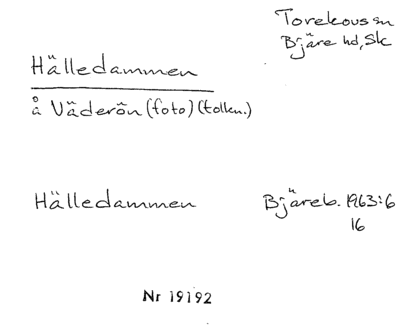 Torekovs sn
Bjäre hd, Sk
Hälledammen
å Väderön (foto) (tolkn.)
Hälledammen
Bjäreb. 1963:6
16
Nr 19192